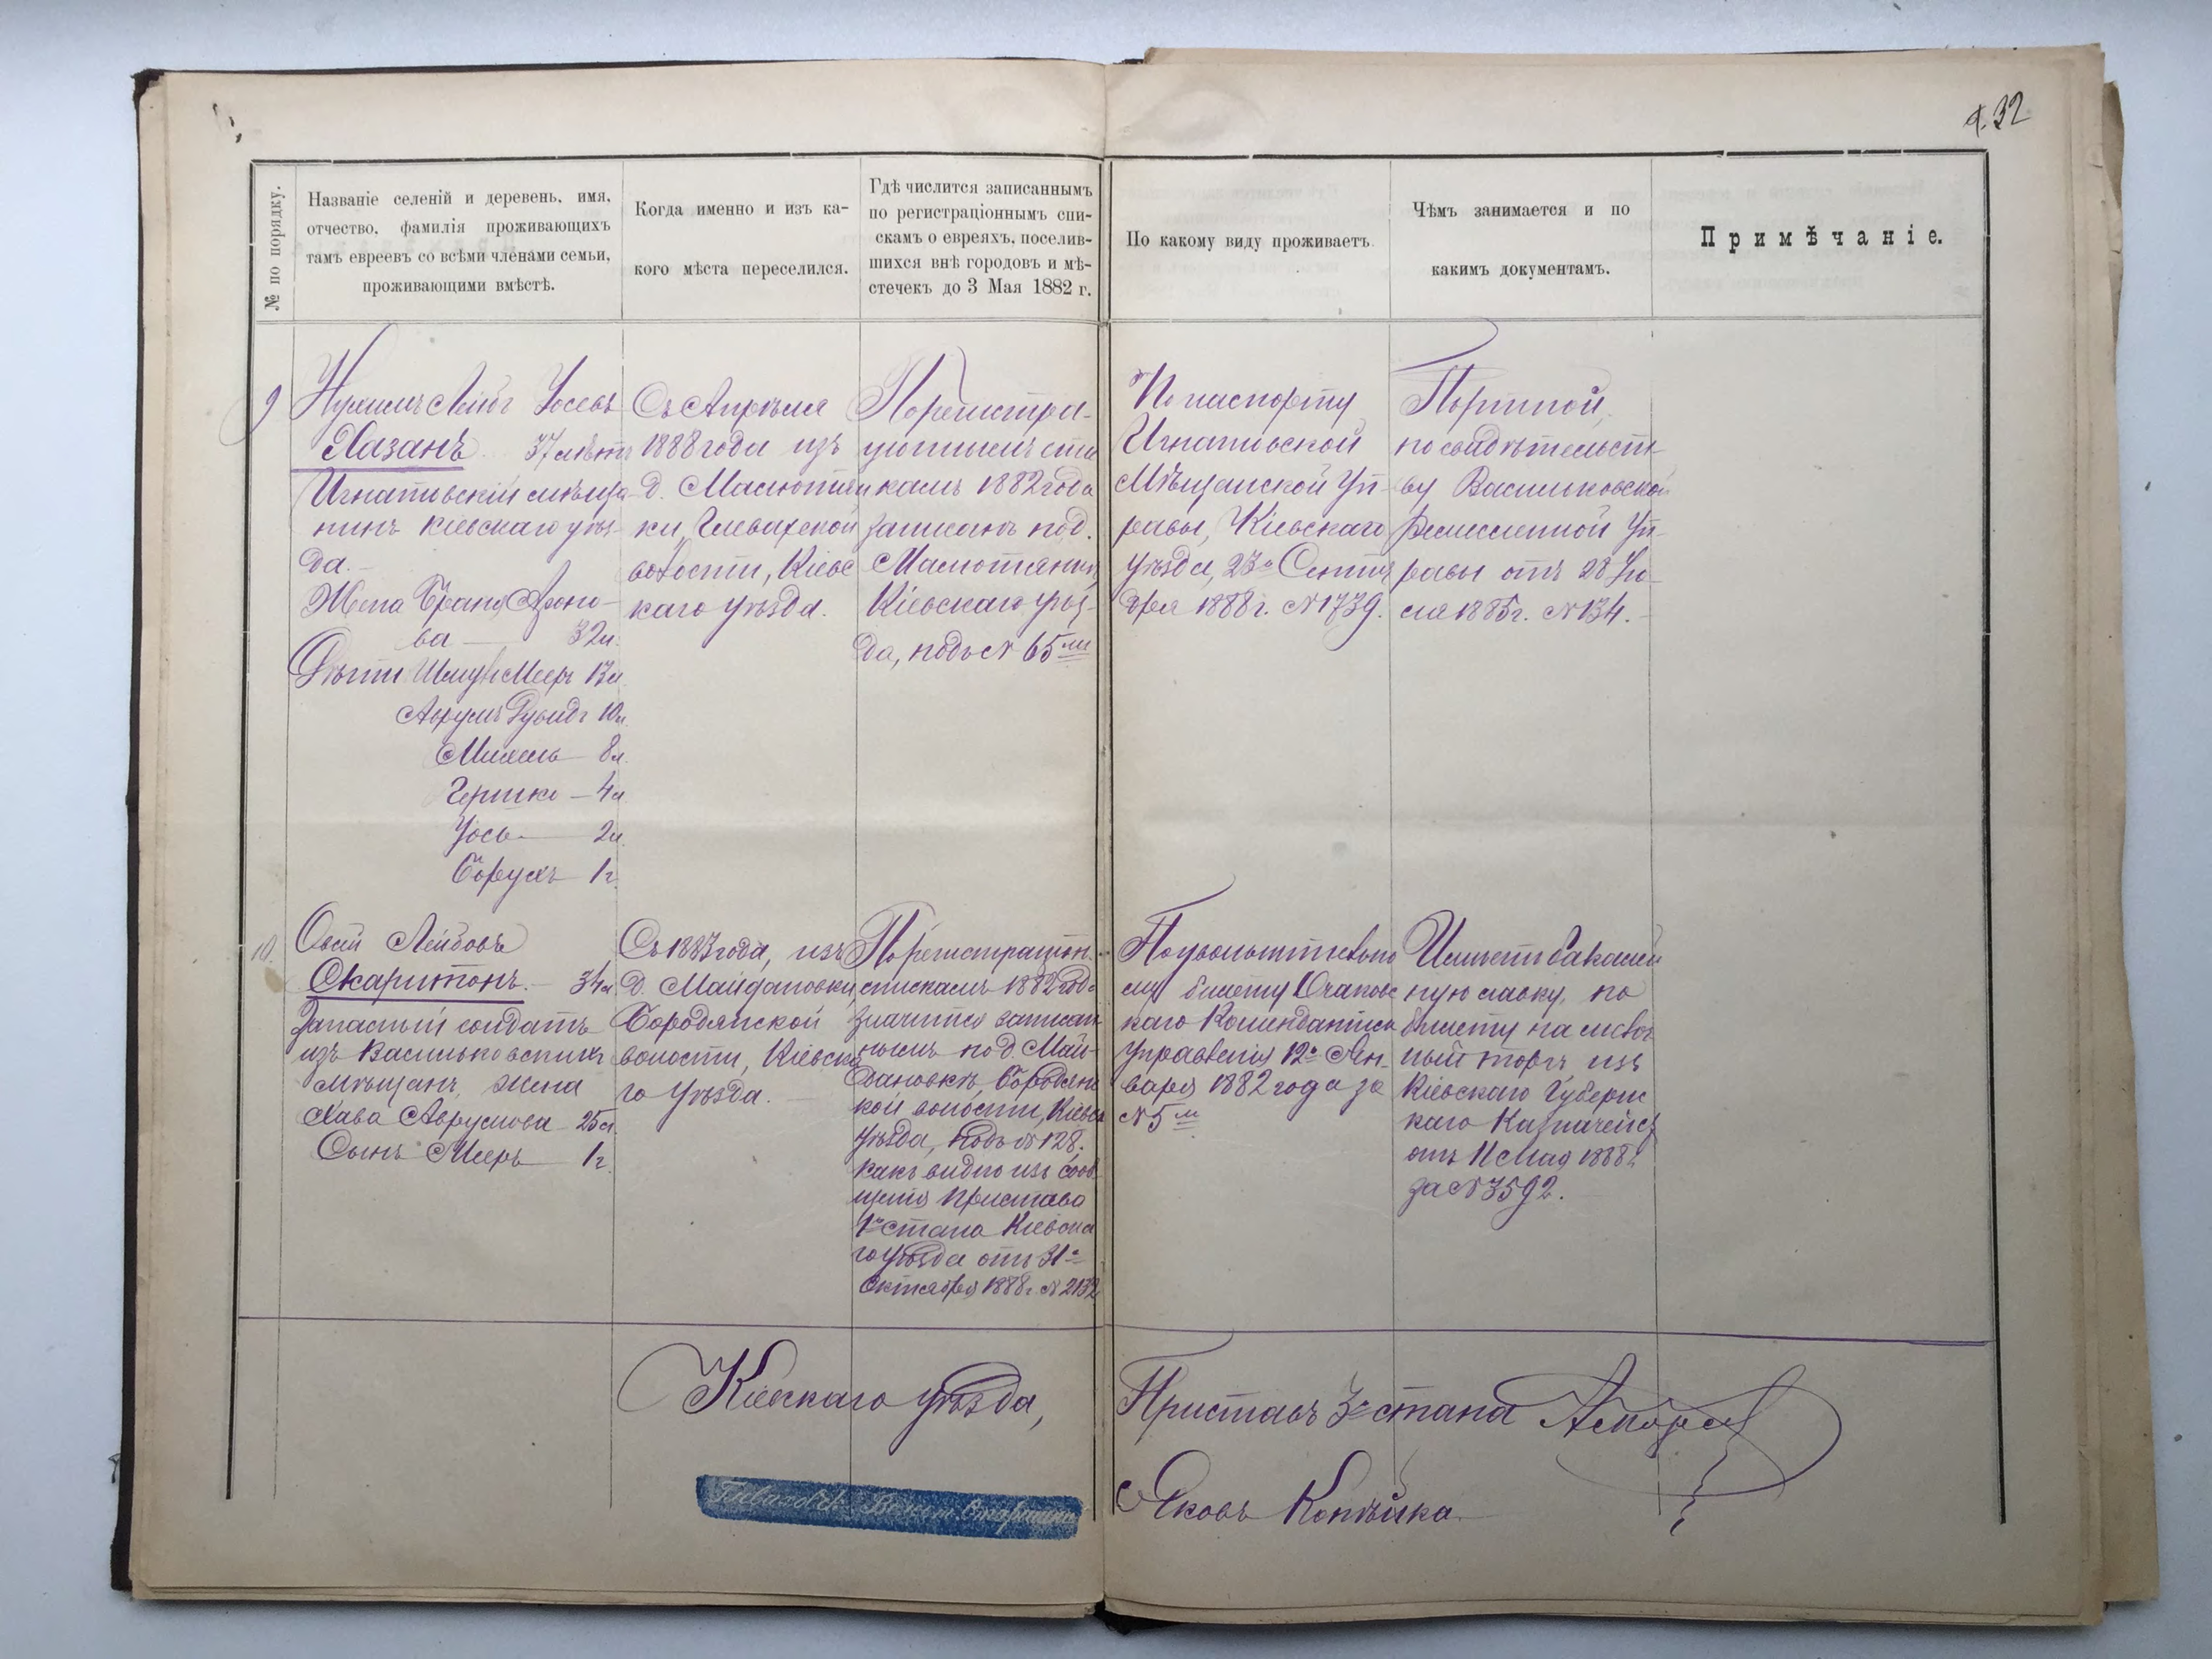 л. 32
№ по порядку.
Названіе селеній и деревень, имя,
отчество, фамилія проживающихъ
тамъ евреевъ со всѣми членами семьи,
проживающими вмѣстѣ.
Когда именно и изъ ка-
кого мѣста переселился.
Гдѣ числится записаннымъ
по регистраціоннымъ спи-
скамъ о евреяхъ, поселив-
шихся внѣ городовъ и мѣ-
стечекъ до 3 Мая 1882 г.
По какому виду проживаетъ.
Чѣмъ занимается и по
какимъ документамъ.
Примѣчаніе.
9
Нухимъ Лейбъ Іосевъ
Хазанъ 37 лѣтъ
Игнатовскій мѣща-
нинъ Кіевскаго уѣз-
да.
Жена Брана Ароно-
ва — 32 л.
Дѣти Шмуль Мееръ 13 л.
Аврумъ Дувидъ 10 л.
Михель — 8 л.
Гершко — 4 л.
Іось — 2 л.
Борухъ — 1 г.
Съ Апрѣля
1888 года изъ
д. Малютян-
ки, Глевахской
волости, Кіевс
каго уѣзда.
По регистра-
ціоннымъ спи
камъ 1882 года
записанъ по д.
Малютянки,
Кіевскаго уѣз-
да, подъ № 65 мъ
По паспорту
Игнатовской
Мѣщанской Уп-
равы, Кіевскаго
уѣзда, 23 го Сентя
бря 1888 г. № 1739.
Портной,
по свидѣтельст-
ву Васильковской
Ремесленной Уп-
равы отъ 28 Ію-
ля 1885 г. № 134.
10.
Овсій Лейбовъ
Скаритонъ. — 34 л.
Запасный солдатъ
изъ Васильковскихъ
мѣщанъ, жена
Хава Аврумова — 25 л.
Сынъ Мееръ — 1 г.
Съ 1887 года, изъ
д. Майдановки,
Бородянской
волости, Кіевска
го уѣзда.
По регистраціон.
спискамъ 1882 года
значится записан
нымъ по д. Май-
дановкѣ, Бородянс
кой волости, Кіевск
уѣзда, подъ № 128.
какъ видно изъ сооб-
щенія Пристава
1 го стана Кіевска
го уѣзда отъ 31 го
Октября 1888 г. № 2132
По увольнительно
му билету Очаковс
каго Комендантск
Управленія 12 го Ян-
варя 1882 года за
№ 5 мъ
Имѣетъ бакалей
ную лавку, по
билету на мелоч
ный торгъ изъ
Кіевскаго Губернс
каго Казначейст
отъ 11 Мая 1888 г.
за № 3592.
Кіевскаго уѣзда,
Приставъ 3 го стана
Глевахск. Волост. Старшина
Яковъ Копѣйка